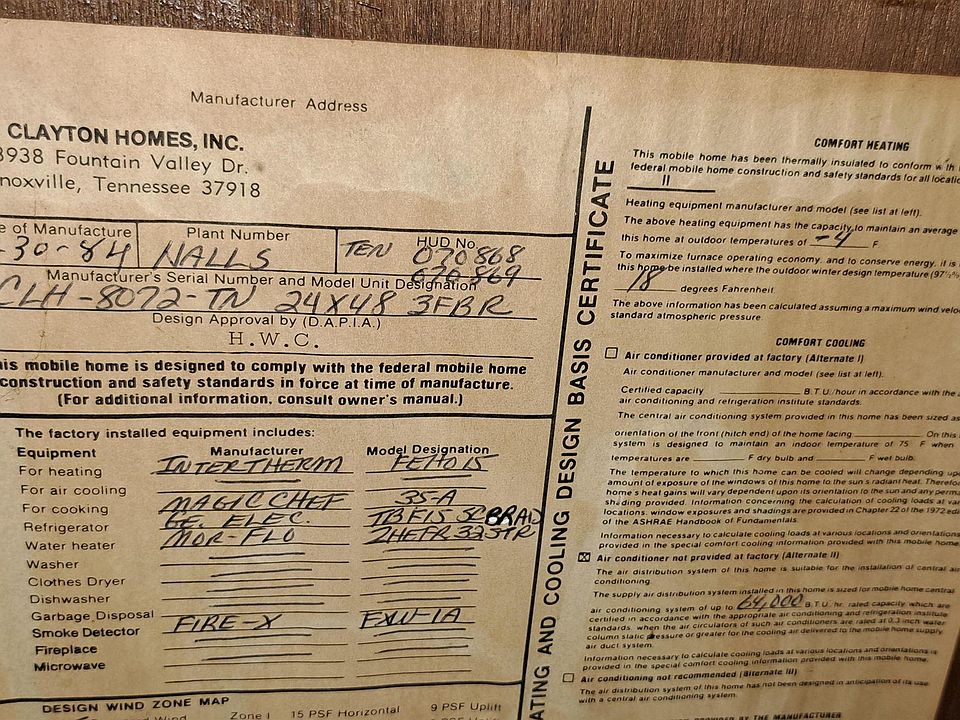 Manufacturer Address
CLAYTON HOMES, INC.
3938 Fountain Valley Dr.
noxville, Tennessee 37918
e of Manufacture
-30-84
Plant Number
NALLS
HUD No.
TEN 070868
070869
Manufacturer's Serial Number and Model Unit Designation
CLH-8072-TN 24X48 3FBR
Design Approval by (D.A.P.I.A.)
H.W.C.
his mobile home is designed to comply with the federal mobile home
construction and safety standards in force at time of manufacture.
(For additional information, consult owner's manual.)
The factory installed equipment includes:
Equipment Manufacturer Model Designation
For heating INTERTHERM
For air cooling
For cooking MAGIC CHEF 35-A
Refrigerator GE. ELEC.
Water heater MOR-FLO
Washer
Clothes Dryer
Dishwasher
Garbage Disposal
Smoke Detector FIRE-X
Fireplace
Microwave
DESIGN WIND ZONE MAP
Zone I 15 PSF Horizontal 9 PSF Uplift
ATING AND COOLING DESIGN BASIS CERTIFICATE
COMFORT HEATING
This mobile home has been thermally insulated to conform with
federal mobile home construction and safety standards for all locatio
II
Heating equipment manufacturer and model (see list at left).
The above heating equipment has the capacity to maintain an average
this home at outdoor temperatures of -4 F
To maximize furnace operating economy, and to conserve energy, it is
this home be installed where the outdoor winter design temperature (97½%
18 degrees Fahrenheit
The above information has been calculated assuming a maximum wind velo
standard atmospheric pressure.
COMFORT COOLING
☐ Air conditioner provided at factory (Alternate I)
Air conditioner manufacturer and model (see list at left).
Certified capacity B.T.U./hour in accordance with the
air conditioning and refrigeration institute standards.
The central air conditioning system provided in this home has been sized as
orientation of the front (hitch end) of the home facing On this
system is designed to maintain an indoor temperature of 75 F when
temperatures are F dry bulb and F wet bulb.
The temperature to which this home can be cooled will change depending upo
amount of exposure of the windows of this home to the sun's radiant heat. Therefor
home's heat gains will vary dependent upon its orientation to the sun and any perma
shading provided. Information concerning the calculation of cooling loads at var
locations, window exposures and shadings are provided in Chapter 22 of the 1972 edi
of the ASHRAE Handbook of Fundamentals.
Information necessary to calculate cooling loads at various locations and orientations
provided in the special comfort cooling information provided with this mobile home.
☒ Air conditioner not provided at factory (Alternate II)
The air distribution system of this home is suitable for the installation of central air
conditioning.
The supply air distribution system installed in this home is sized for mobile home central
air conditioning system of up to 64,000 B.T.U. hr. rated capacity which are
certified in accordance with the appropriate air conditioning and refrigeration institute
standards, when the air circulators of such air conditioners are rated at 0.3 inch water
column static pressure or greater for the cooling air delivered to the mobile home supply
air duct system.
Information necessary to calculate cooling loads at various locations and orientations is
provided in the special comfort cooling information provided with this mobile home.
☐ Air conditioning not recommended (Alternate III)
The air distribution system of this home has not been designed in anticipation of its use
with a central air conditioning system.